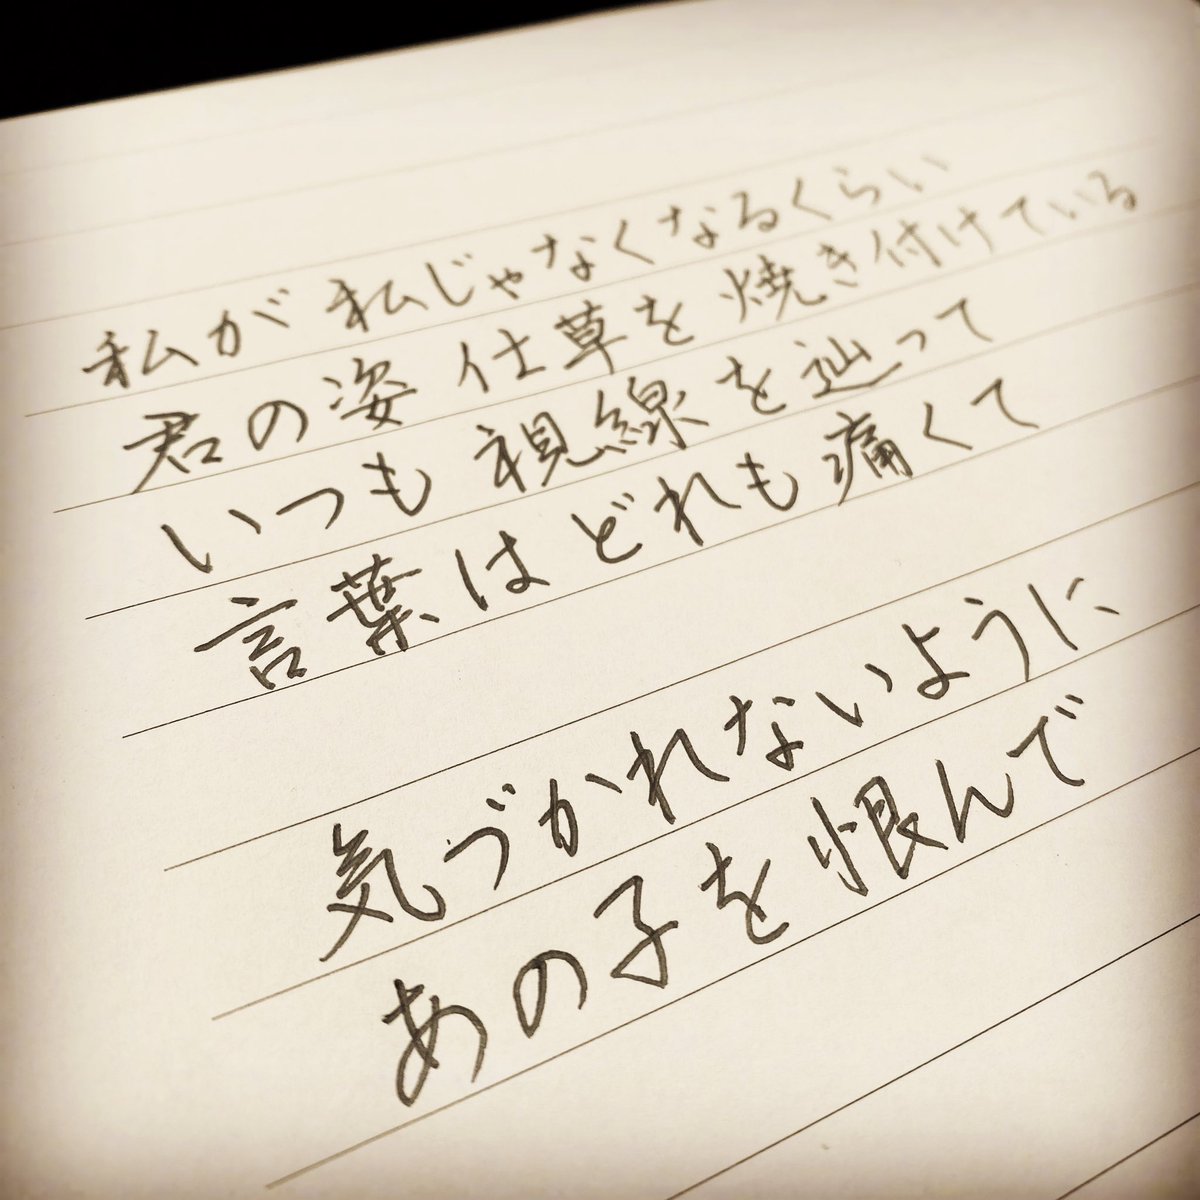 私が私じゃなくなるくらい
君の姿 仕草を焼き付けている
いつも視線を辿って
言葉はどれも痛くて
気づかれないように
あの子を恨んで